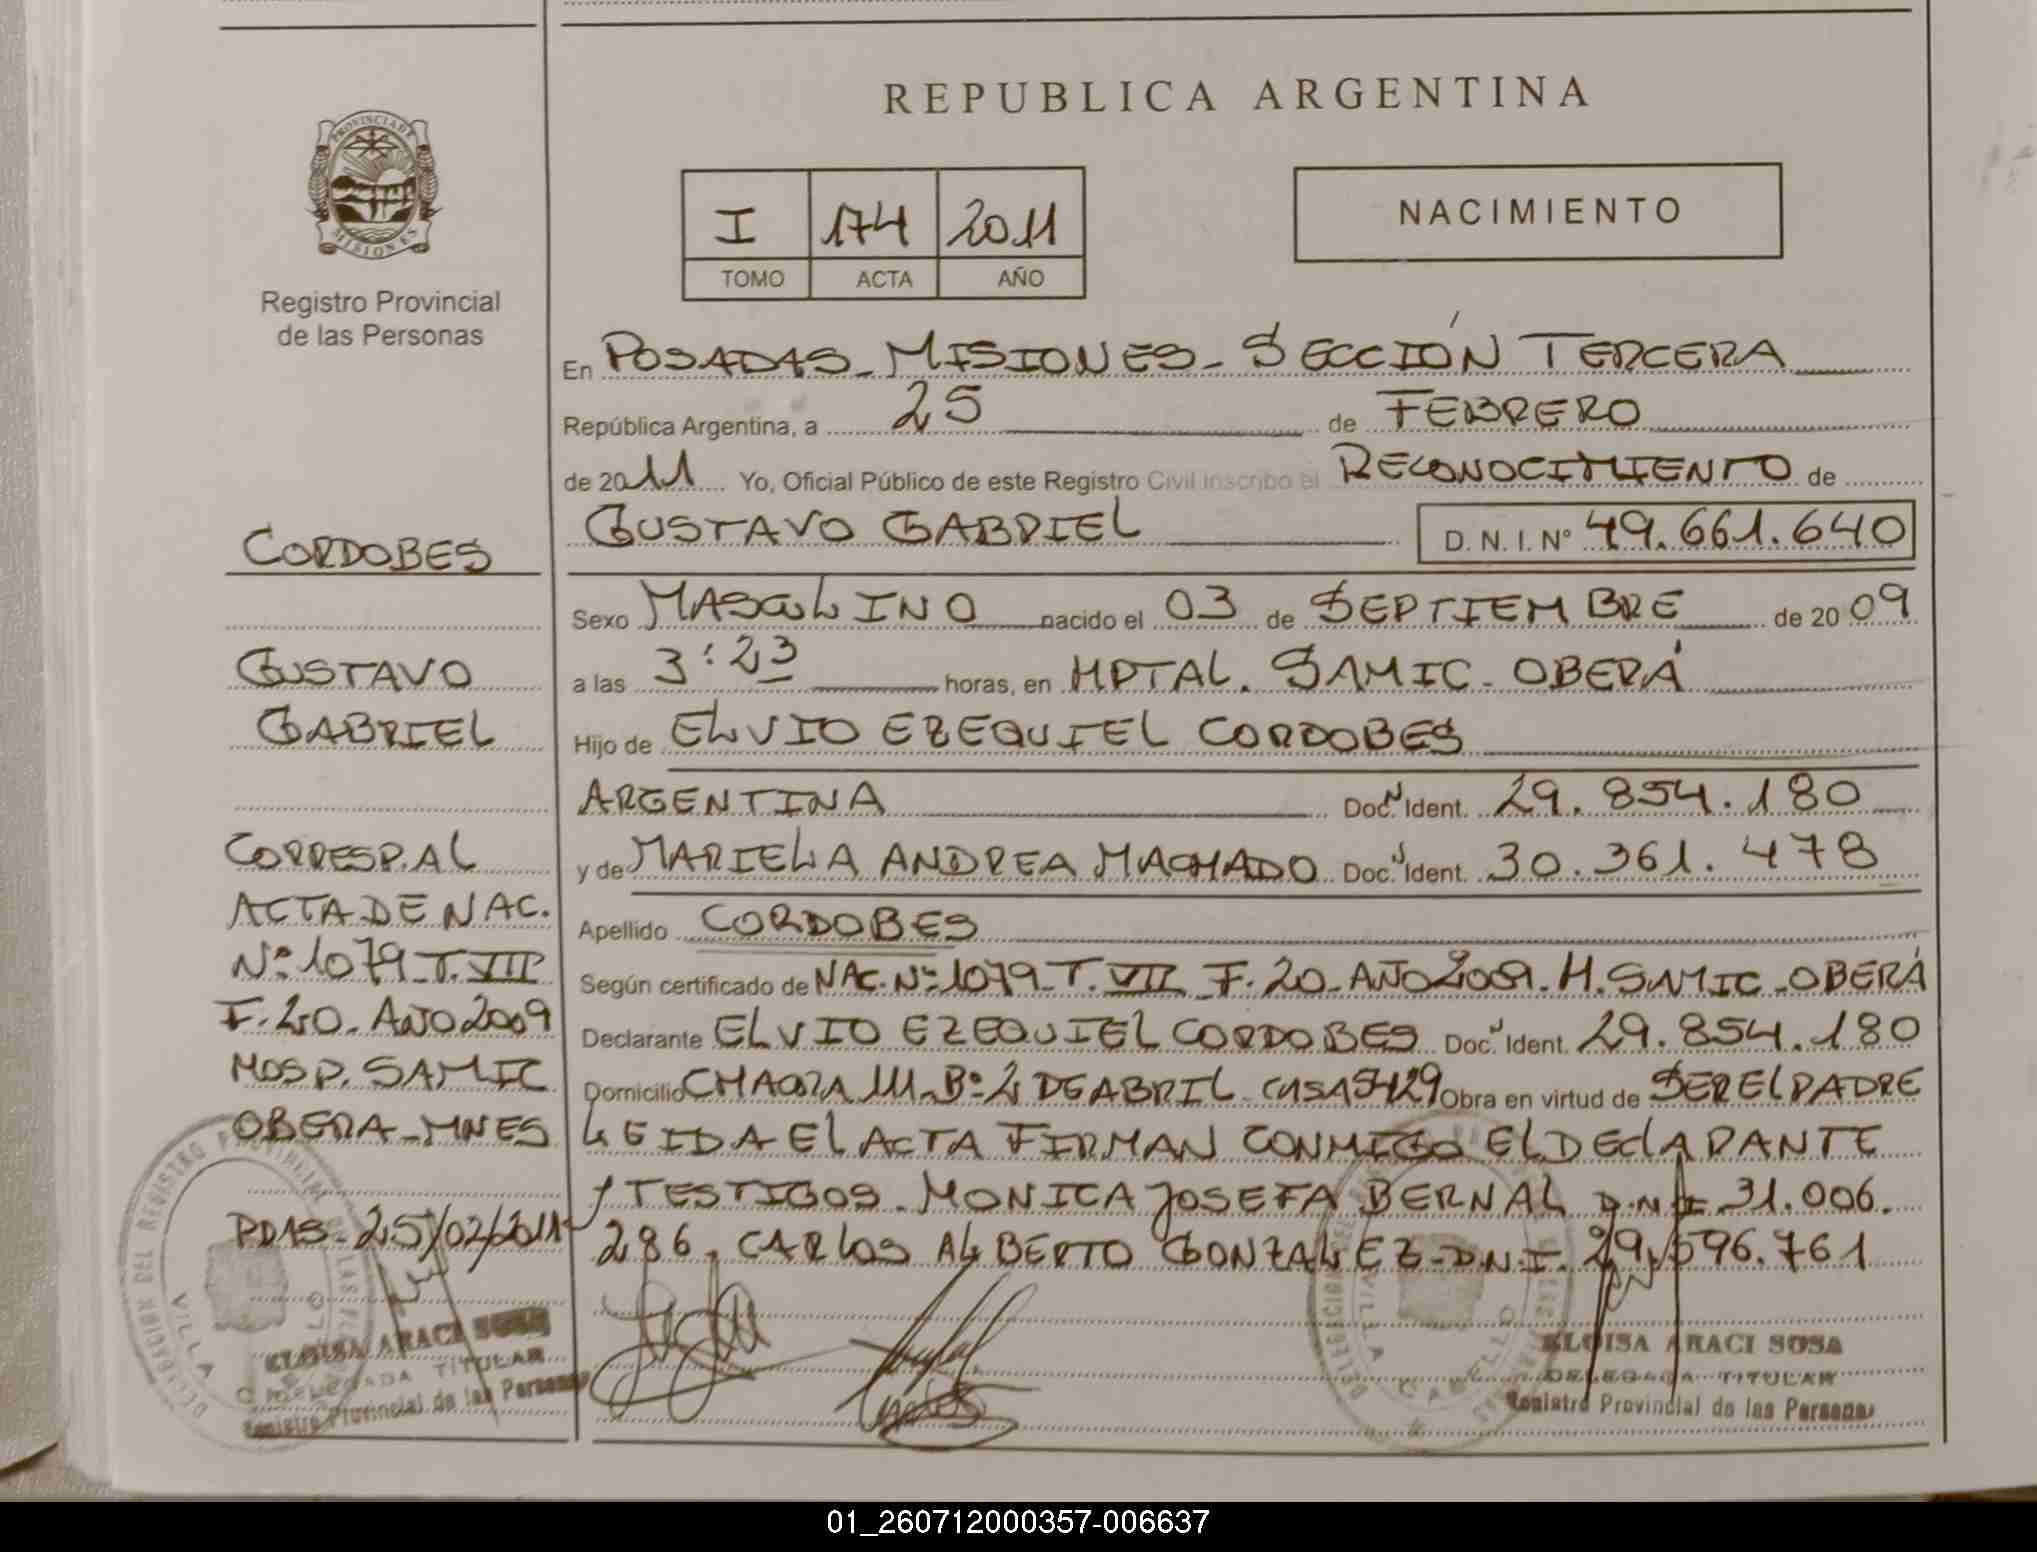 REPUBLICA ARGENTINA
PROVINCIA DE
MISIONES
Registro Provincial
de las Personas
I 174 2011
TOMO ACTA AÑO
NACIMIENTO
En POSADAS - MISIONES - SECCIÓN TERCERA
República Argentina, a 25 de FEBRERO
de 2011 Yo, Oficial Público de este Registro Civil inscribo el RECONOCIMIENTO de
GUSTAVO GABRIEL D. N. I. Nº 49.661.640
Sexo MASCULINO nacido el 03 de SEPTIEMBRE de 2009
a las 3:23 horas, en HPTAL. SAMIC - OBERÁ
Hijo de ELVIO EZEQUIEL CORDOBES
ARGENTINA Doc. N Ident. 29.854.180
y de MARIELA ANDREA MACHADO Doc. N Ident. 30.361.478
Apellido CORDOBES
Según certificado de NAC. Nº 1079 - T. VII F. 20 - AÑO 2009 - H. SAMIC - OBERÁ
Declarante ELVIO EZEQUIEL CORDOBES Doc. N Ident. 29.854.180
Domicilio CHACRA 111 - Bº 2 DE ABRIL - CASA Obra en virtud de SER EL PADRE
LEIDA EL ACTA FIRMAN CONMIGO EL DECLARANTE
y TESTIGOS - MONICA JOSEFA BERNAL D.N.I. 31.006.
286, CARLOS ALBERTO GONZALEZ - D.N.I. 29.596.761
ELOISA ARACI SOSA
DELEGADA TITULAR
Registro Provincial de las Personas
CORDOBES
GUSTAVO
GABRIEL
CORRESP. AL
ACTA DE NAC.
Nº 1079 - T. VII
F. 20 - AÑO 2009
HOSP. SAMIC
OBERA - MNES
PDAS - 25/02/2011
ELOISA ARACI SOSA
DELEGADA TITULAR
Registro Provincial de las Personas
DELEGACION DEL REGISTRO PROVINCIAL DE LAS
VILLA CABELLO
VILLA CABELLO
01_260712000357-006637